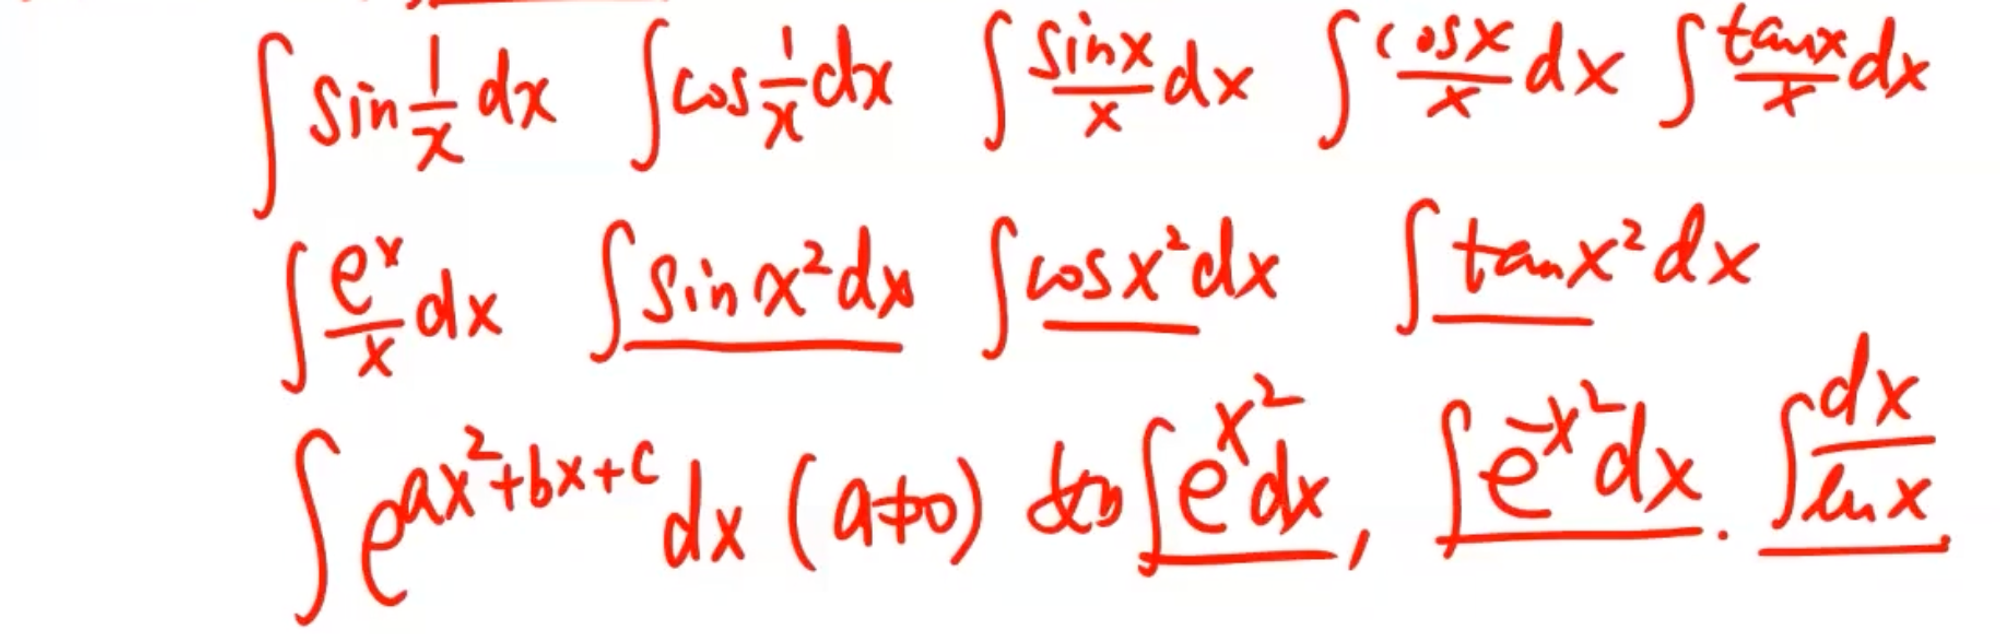 ∫ sin 1/x dx ∫ cos 1/x dx ∫ sinx/x dx ∫ cosx/x dx ∫ tanx/x dx
∫ e^x/x dx ∫ sin x² dx ∫ cos x² dx ∫ tan x² dx
∫ e^(ax²+bx+c) dx (a≠0) 如 ∫ e^(x²) dx, ∫ e^(-x²) dx. ∫ dx/ln x